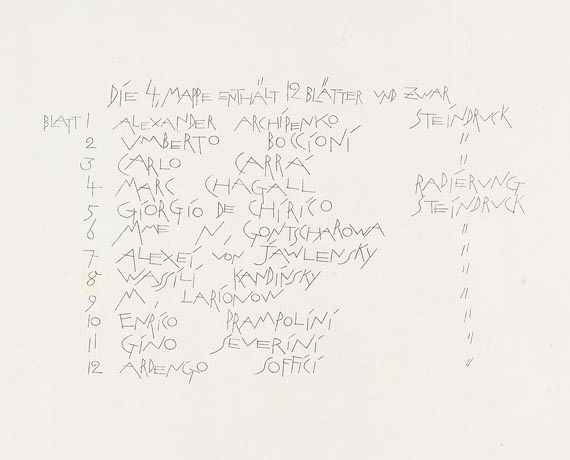 DIE 4. MAPPE ENTHÄLT 12 BLÄTTER UND ZWAR
BLATT 1 ALEXANDER ARCHIPENKO STEINDRUCK
2 UMBERTO BOCCIONI "
3 CARLO CARRÀ "
4 MARC CHAGALL RADIERUNG
5 GIORGIO DE CHIRICO STEINDRUCK
6 MME N. GONTSCHAROWA "
7 ALEXEI VON JAWLENSKY "
8 WASSILI KANDINSKY "
9 M. LARIONOW "
10 ENRICO PRAMPOLINI "
11 GINO SEVERINI "
12 ARDENGO SOFFICI "